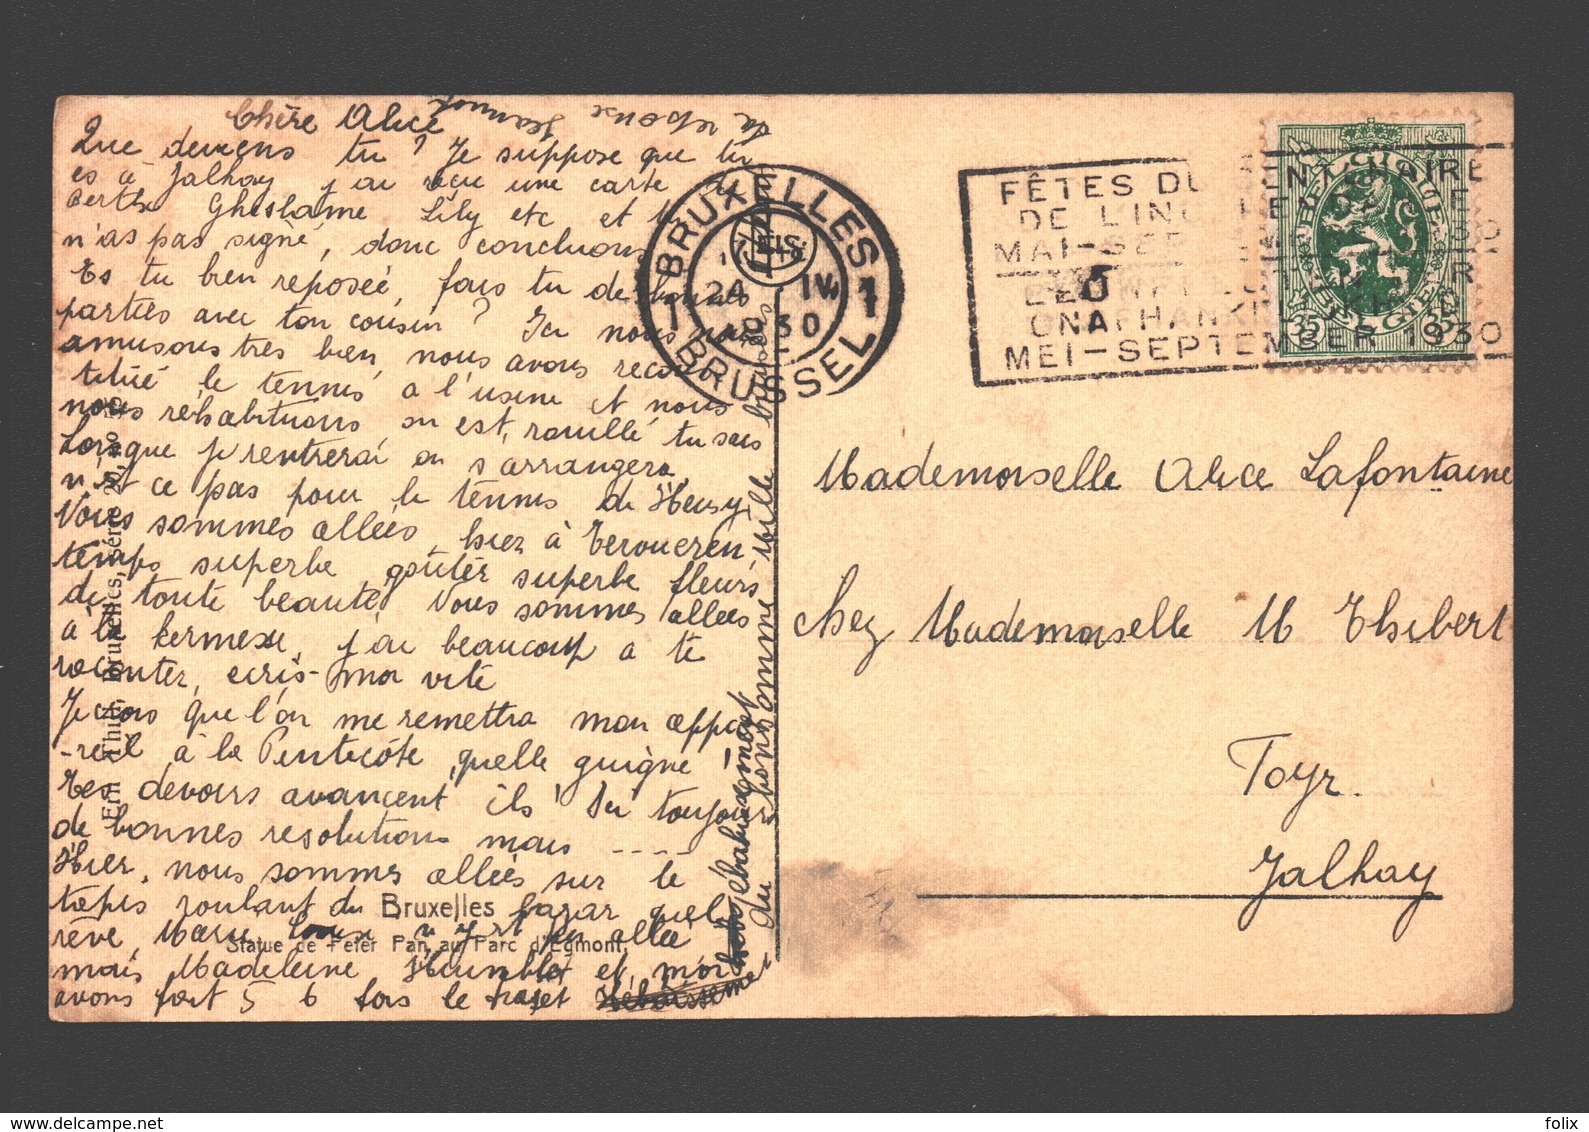 Chère Alice
Que deviens tu? Je suppose que tu
es à Jalhay j'ai reçu une carte de
Berthe Ghislaine Lily etc et tu
n'as pas signé, donc concluons
Es tu bien reposée, fais tu de bonnes
parties avec ton cousin? Ici nous nous
amusons très bien, nous avons recons
titué le tennis à l'usine et nous
nous réhabituons on est rouillé tu sais
Lorsque je rentrerai on s'arrangera
n'est ce pas pour le tennis de Heusy
Nous sommes allées hier à Tervueren,
temps superbe, goûter superbe fleurs
de toute beauté, Nous sommes allées
à la kermesse, j'ai beaucoup à te
raconter, ecris-moi vite
Je crois que l'on me remettra mon appa
-reil à la Pentecôte, quelle guigne!
Tes devoirs avancent ils? Ici toujours
de bonnes resolutions mais ----
Hier, nous sommes allées sur le
tapis roulant du bazar quel
rêve, Marie n'y est pas allée
mais Madeleine et moi
avons fait 5 6 fois le trajet
du personne mille baisers
la reponse
Ern. Thill, Bruxelles, Série 20, No
Bruxelles
Statue de Peter Pan, au Parc d'Egmont.
BRUXELLES 1
24 IV
1930
1 BRUSSEL
FÊTES DU CENTENAIRE
DE L'IND
MAI-SE
MEI-SEPTEMBER 1930
BELGIQUE
BELGIE
35 35
Mademoiselle Alice Lafontaine
chez Mademoiselle M Thibert
Toyr.
Jalhay
felix